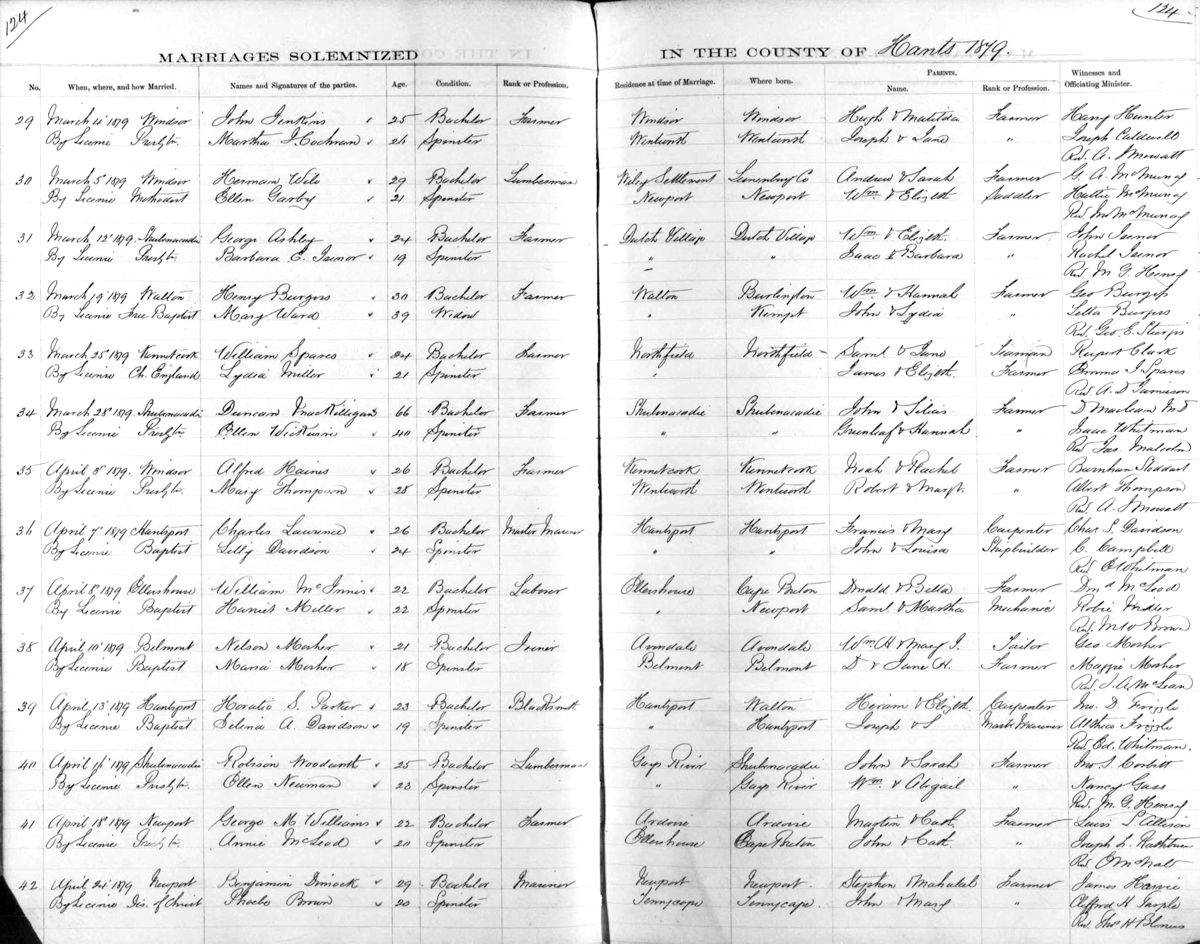 124
124
MARRIAGES SOLEMNIZED
IN THE COUNTY OF Hants 1879.
No. When, where, and how Married. Names and Signatures of the parties. Age. Condition. Rank or Profession. Residence at time of Marriage. Where born. PARENTS. Name. Rank or Profession. Witnesses and Officiating Minister.
29 March 4 1879 Windsor John Jenkins 25 Bachelor Farmer Windsor Windsor Hugh & Matilda Farmer Harry Hunter
By Licence Presbytn Martha J. Cochran 26 Spinster Wentworth Wentworth Joseph & Jane " Joseph Caldwell
Rev. A. J Mowatt
30 March 5 1879 Windsor Herman Wile 29 Bachelor Lumberman Wiley Settlement Lunenburg Co Andrew & Sarah Farmer G. A. McMurray
By Licence Methodist Ellen Garby 21 Spinster Newport Newport Wm & Elizth Saddler Hattie McMurray
Rev. Jno McMurray
31 March 12 1879 Shubenacadie George Ashley 24 Bachelor Farmer Dutch Village Dutch Village Wm & Elizth. Farmer John Isenor
By Licence Presbytn Barbara E. Isenor 19 Spinster " " Isaac & Barbara " Rachel Isenor
Rev. M. G. Henry
32 March 19 1879 Walton Henry Burgess 30 Bachelor Farmer Walton Burlington Wm & Hannah Farmer Geo Burgess
By Licence Free Baptist Mary Ward 39 Widow " Kempt John & Lydia " Letta Burgess
Rev. Geo. E. Sturgis
33 March 25 1879 Kennetcook William Spares 24 Bachelor Farmer Northfield Northfield Saml & Jane Seaman Rupert Clark
By Licence Ch. England Lydia Miller 21 Spinster " James & Elizth. Farmer Emma J. Spares
Rev. A. D Jamison
34 March 28 1879 Shubenacadie Duncan MacKilligan 66 Bachelor Farmer Shubenacadie Shubenacadie John & Silias Farmer D Maclean MD
By Licence Presbytn Ellen 40 Spinster " " Greenleaf & Hannah " Isaac Whitman
Rev Jas. Malcolm
35 April 3 1879. Windsor Alfred Haines 26 Bachelor Farmer Kennetcook Kennetcook Noah & Rachel Farmer Burnham Stoddart
By Licence Presbytn Mary Thompson 28 Spinster Wentworth Wentworth Robert & Margt. " Albert Thompson
Rev. A. J Mowatt
36 April 7 1879 Hantsport Charles Lawrence 26 Bachelor Master Mariner Hantsport Hantsport Francis & Mary Carpenter Chas S. Davidson
By Licence Baptist Letty Davidson 24 Spinster " " John & Louisa Shipbuilder C. Campbell
Rev E Whitman
37 April 8 1879 Ellershouse William McInnis 22 Bachelor Laborer Ellershouse Cape Breton Donald & Bella Farmer McLeod
By Licence Baptist Harriet Miller 22 Spinster " Newport Saml & Martha Mechanic Robie Miller
Rev. M W Brown
38 April 10 1879 Belmont Nelson Mosher 21 Bachelor Joiner Avondale Avondale Wm H & Mary J. Tailor Geo Mosher
By Licence Baptist Maria Mosher 18 Spinster Belmont Belmont D & Jane H. Farmer Maggie Mosher
Rev. J. A. McLean
39 April 13 1879 Hantsport Horatio S. Parker 23 Bachelor Blacksmith Hantsport Walton Hiram & Elizth. Carpenter Jno. D. Frizzle
By Licence Baptist Selena A. Davidson 19 Spinster " Hantsport Joseph & S Mast Mariner Althea Frizzle
Rev. Ed. Whitman.
40 April 16 1879 Shubenacadie Robison Woodworth 25 Bachelor Lumberman Gays River Shubenacadie John & Sarah Farmer Jno S. Corbett
By Licence Presbytn Ellen Newman 23 Spinster " Gays River Wm & Abigail " Nancy Gass
Rev. M. G. Henry
41 April 18 1879 Newport George McWilliams 22 Bachelor Farmer Ardoise Ardoise Martin & Cath. Farmer Louis S Allison
By Licence Presbytn Annie McLeod 20 Spinster Ellershouse Cape Breton John & Cath. " Joseph L. Rathburn
Rev McNab
42 April 24 1879 Newport Benjamin Dimock 29 Bachelor Mariner Newport Newport Stephen & Mahalah Farmer James Harvie
By Licence Dis. of Christ Phoebe Brown 20 Spinster Tennycape Tennycape John & Mary " Clifford H
Rev. Thos H Blenus